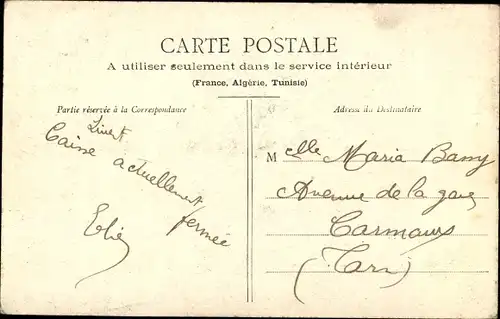 CARTE POSTALE
A utiliser seulement dans le service intérieur
(France, Algérie, Tunisie)
Partie réservée à la Correspondance
Adresse du Destinataire
Caisse actuellement
fermée
Elie
Melle Maria Bamy
Avenue de la gare
Carmaux
(Tarn)